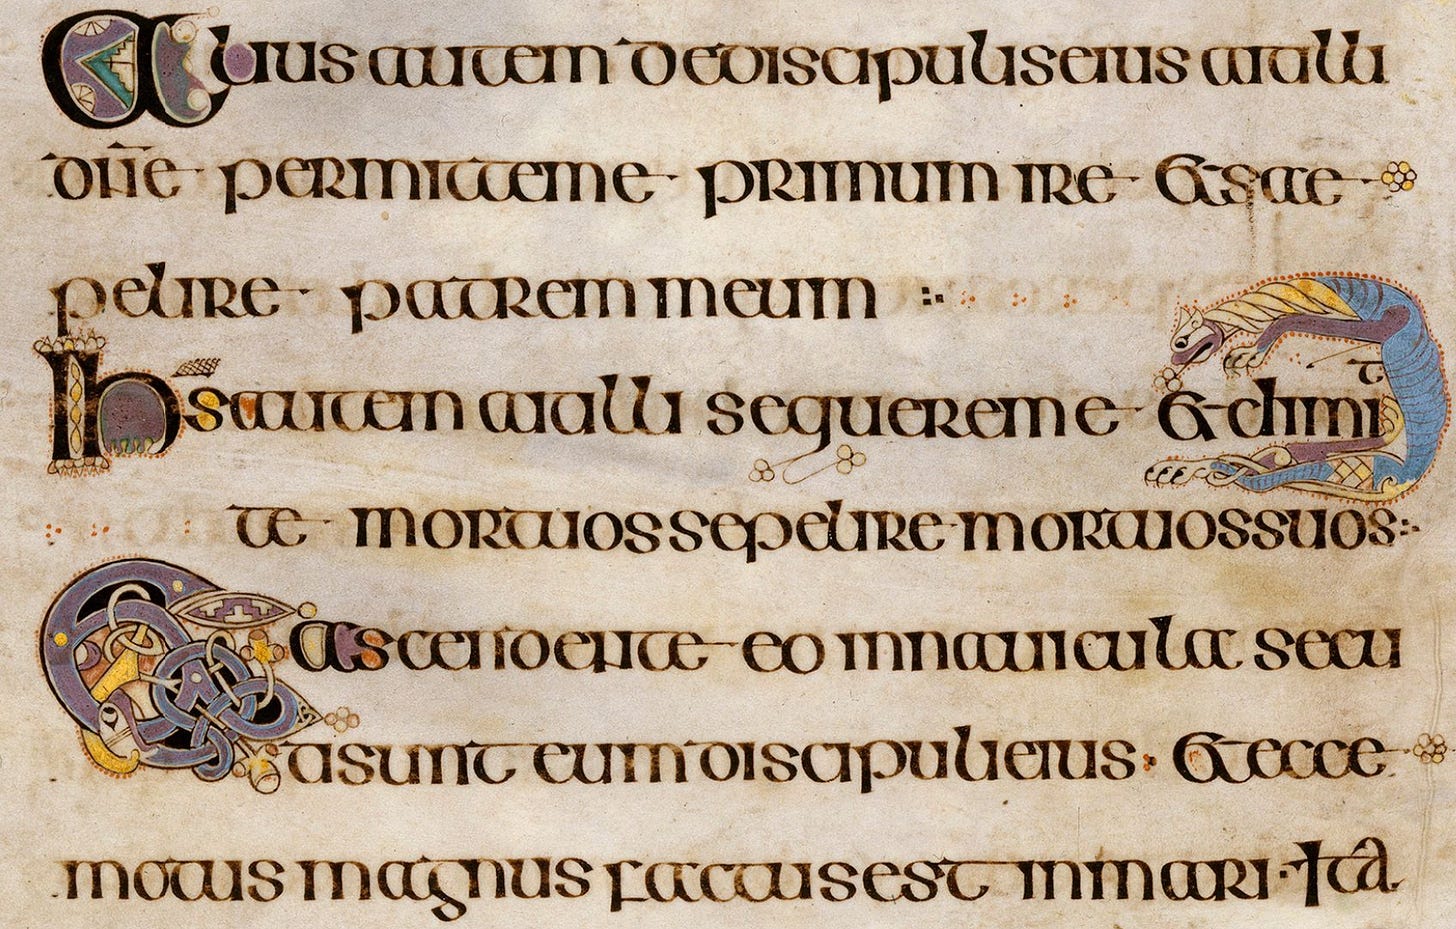 Alius autem de discipulis eius ait illi
dn̄e permitte me primum ire & sae
pelire patrem meum
Ihs autem ait illi sequere me & dimit
te mortuos sepelire mortuos suos
Et ascendente eo in nauicula secu
ti sunt eum discipuli eius & ecce
motus magnus factus est in mari · Ita